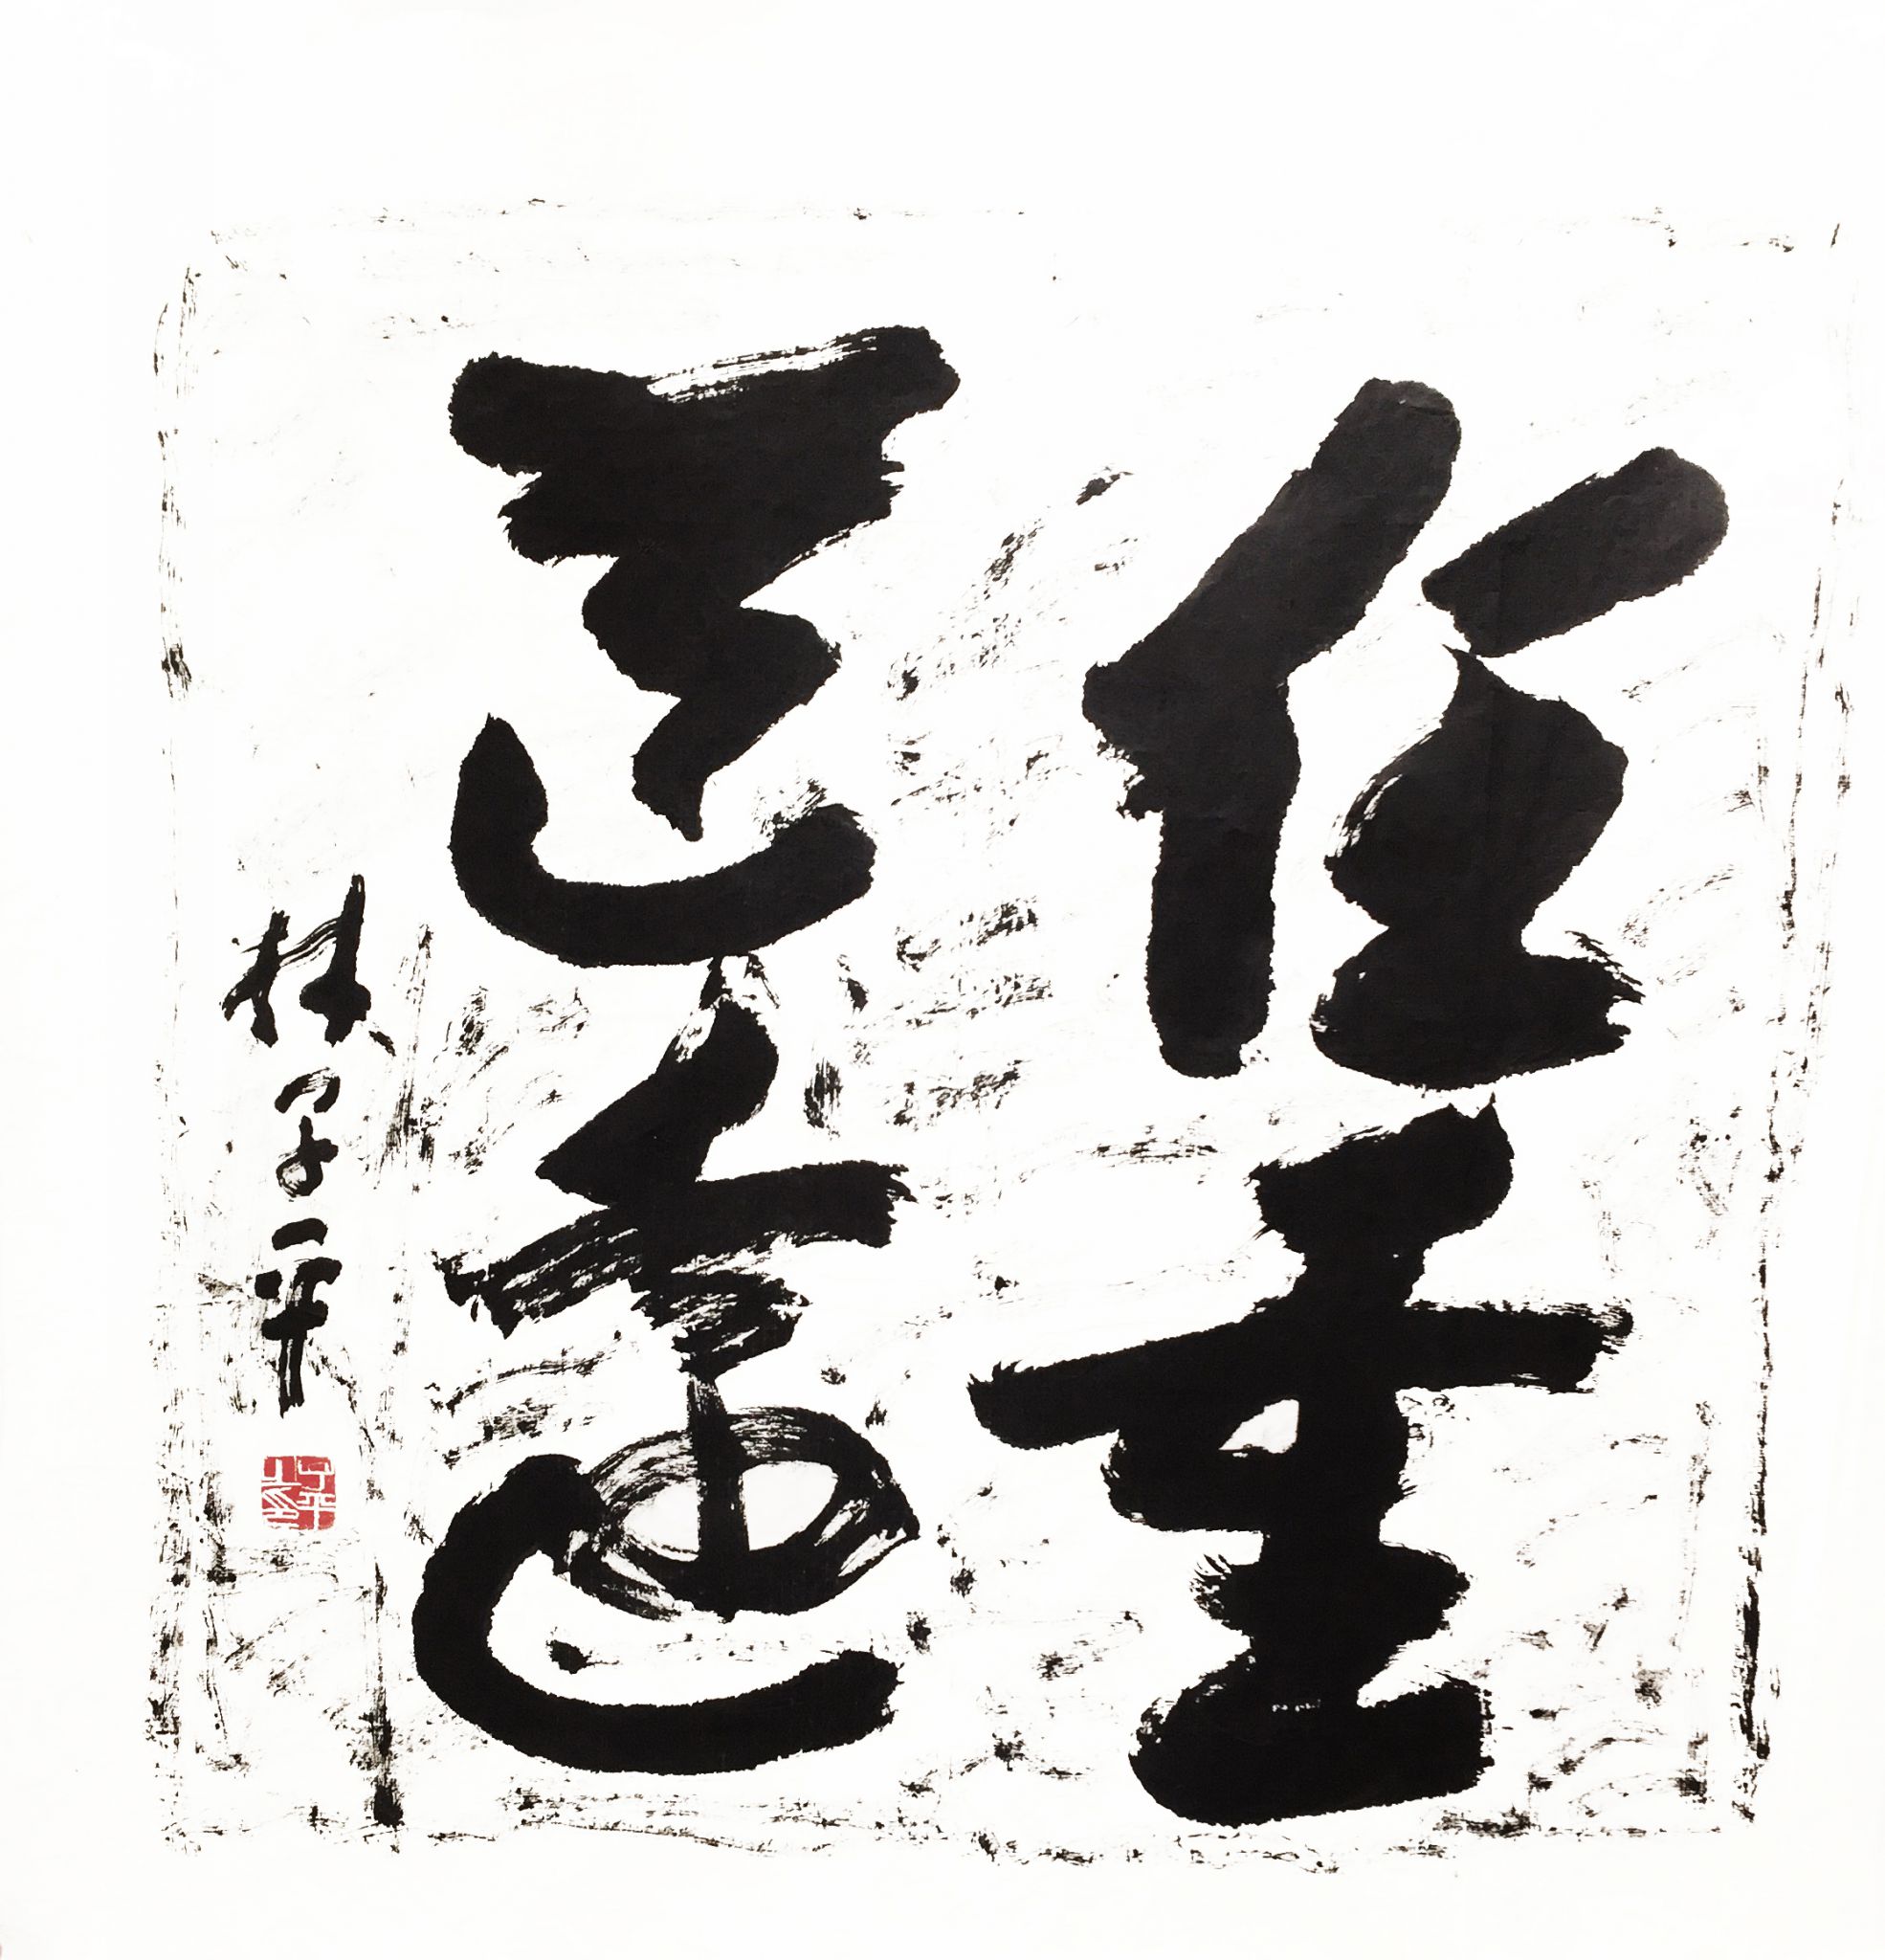 任重
道遠
林子平